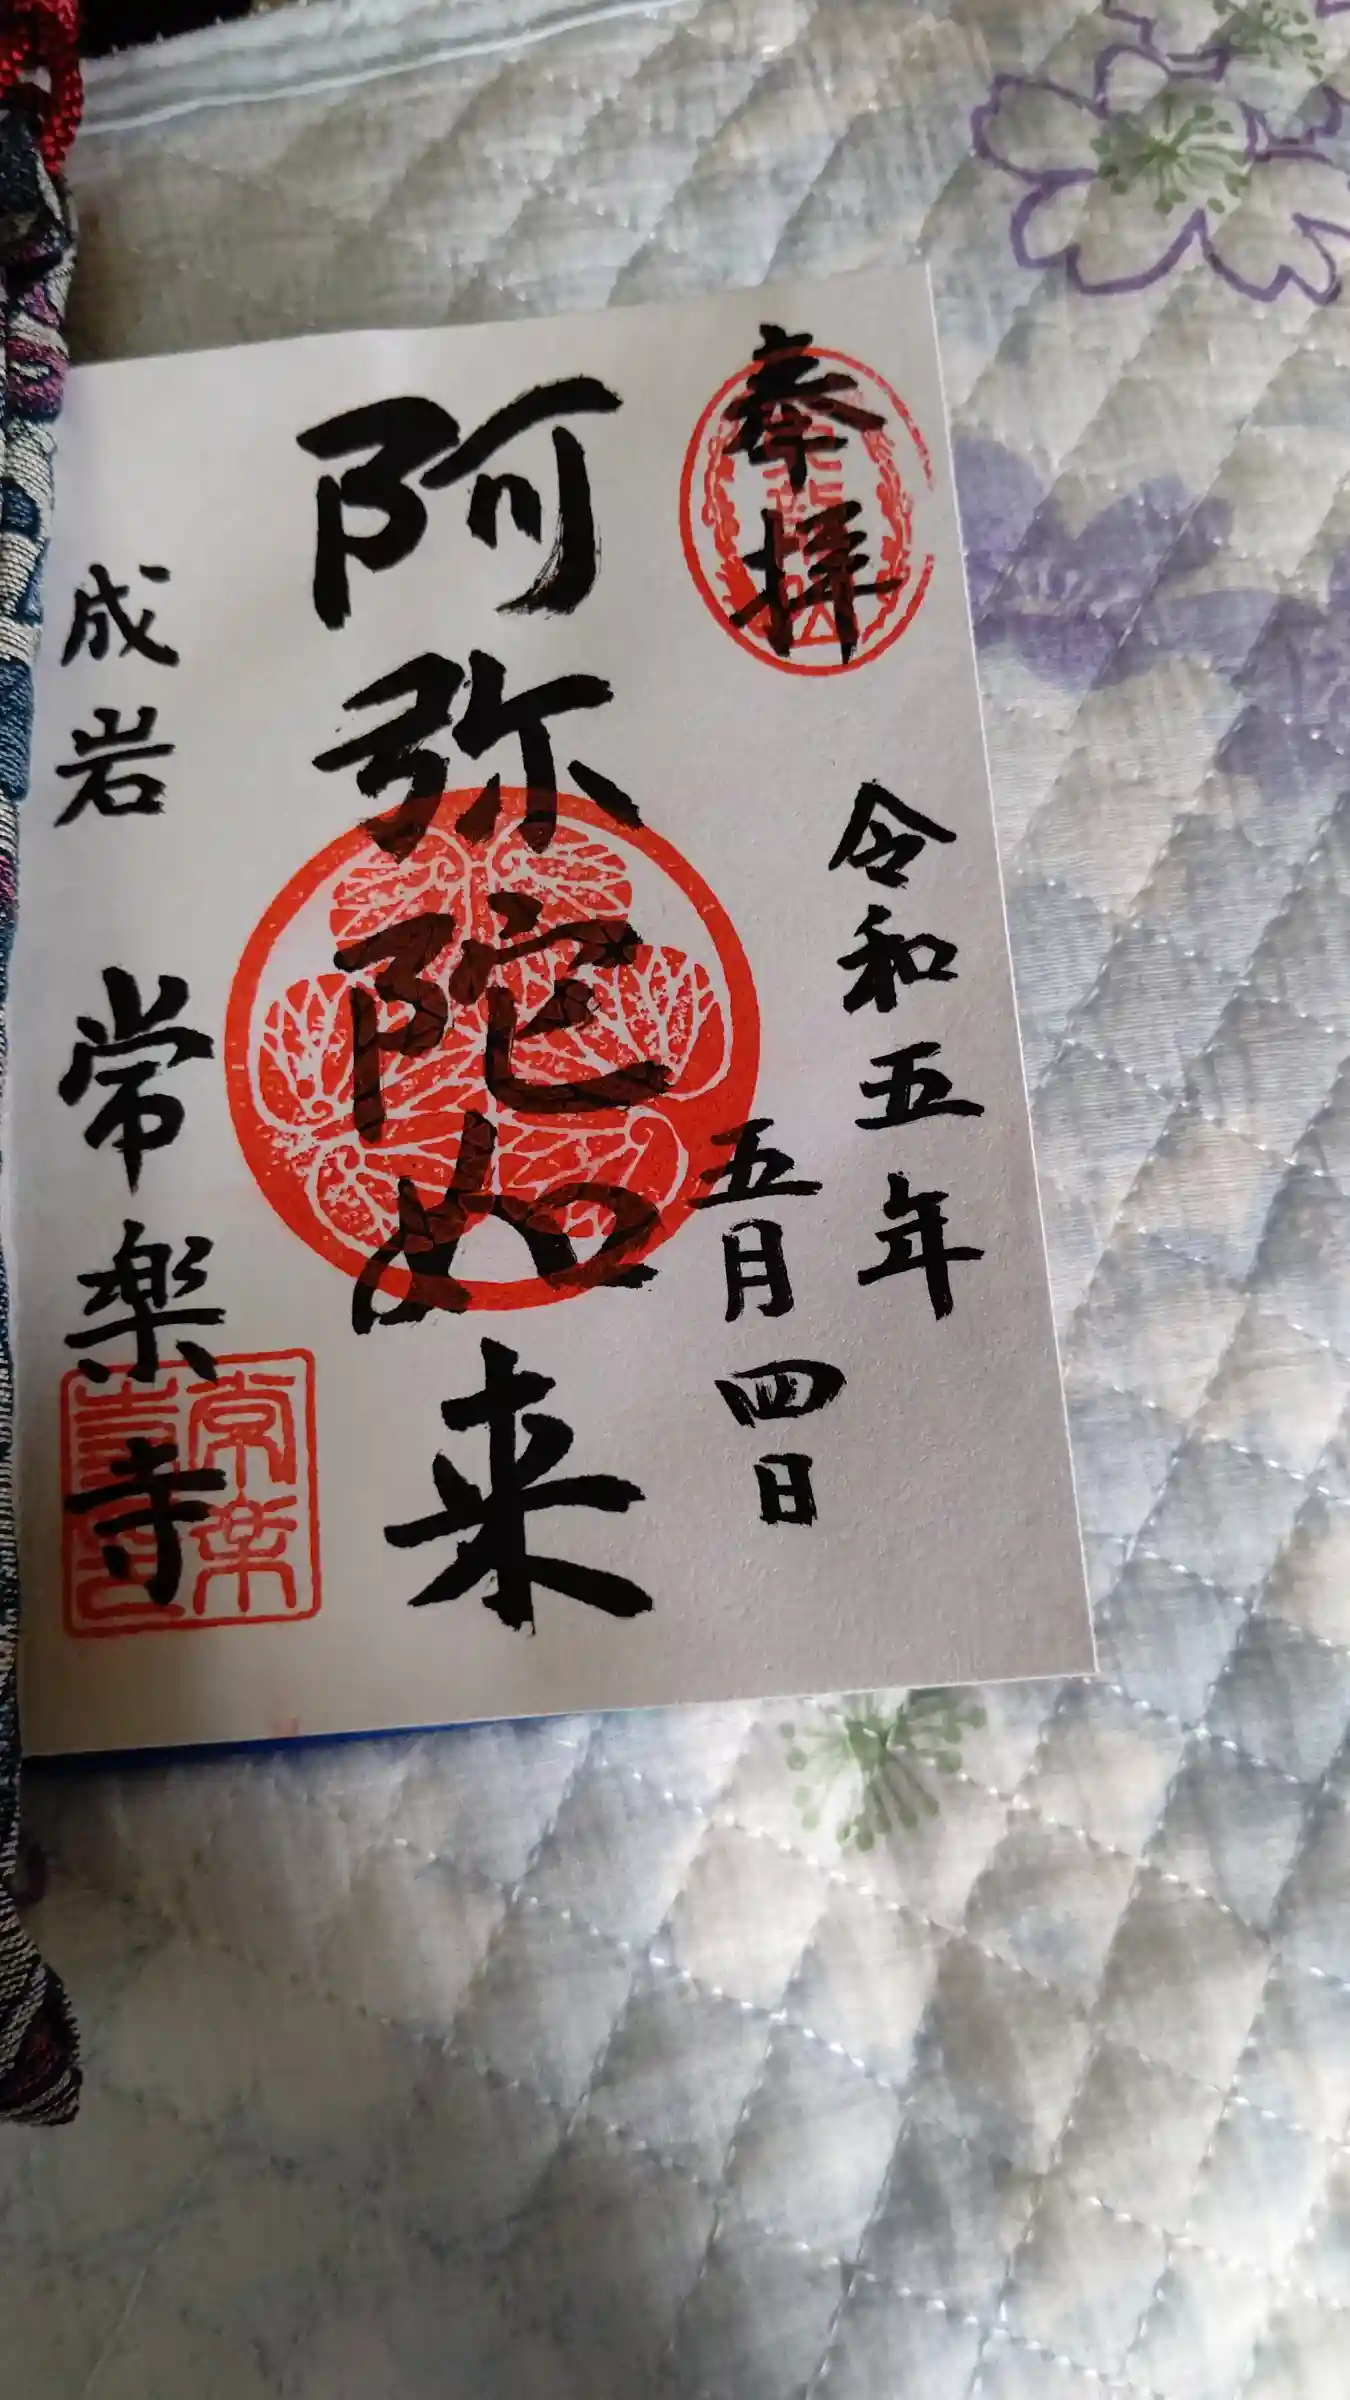 奉拝
令和五年
五月四日
阿弥陀如来
成岩
常楽寺
常楽